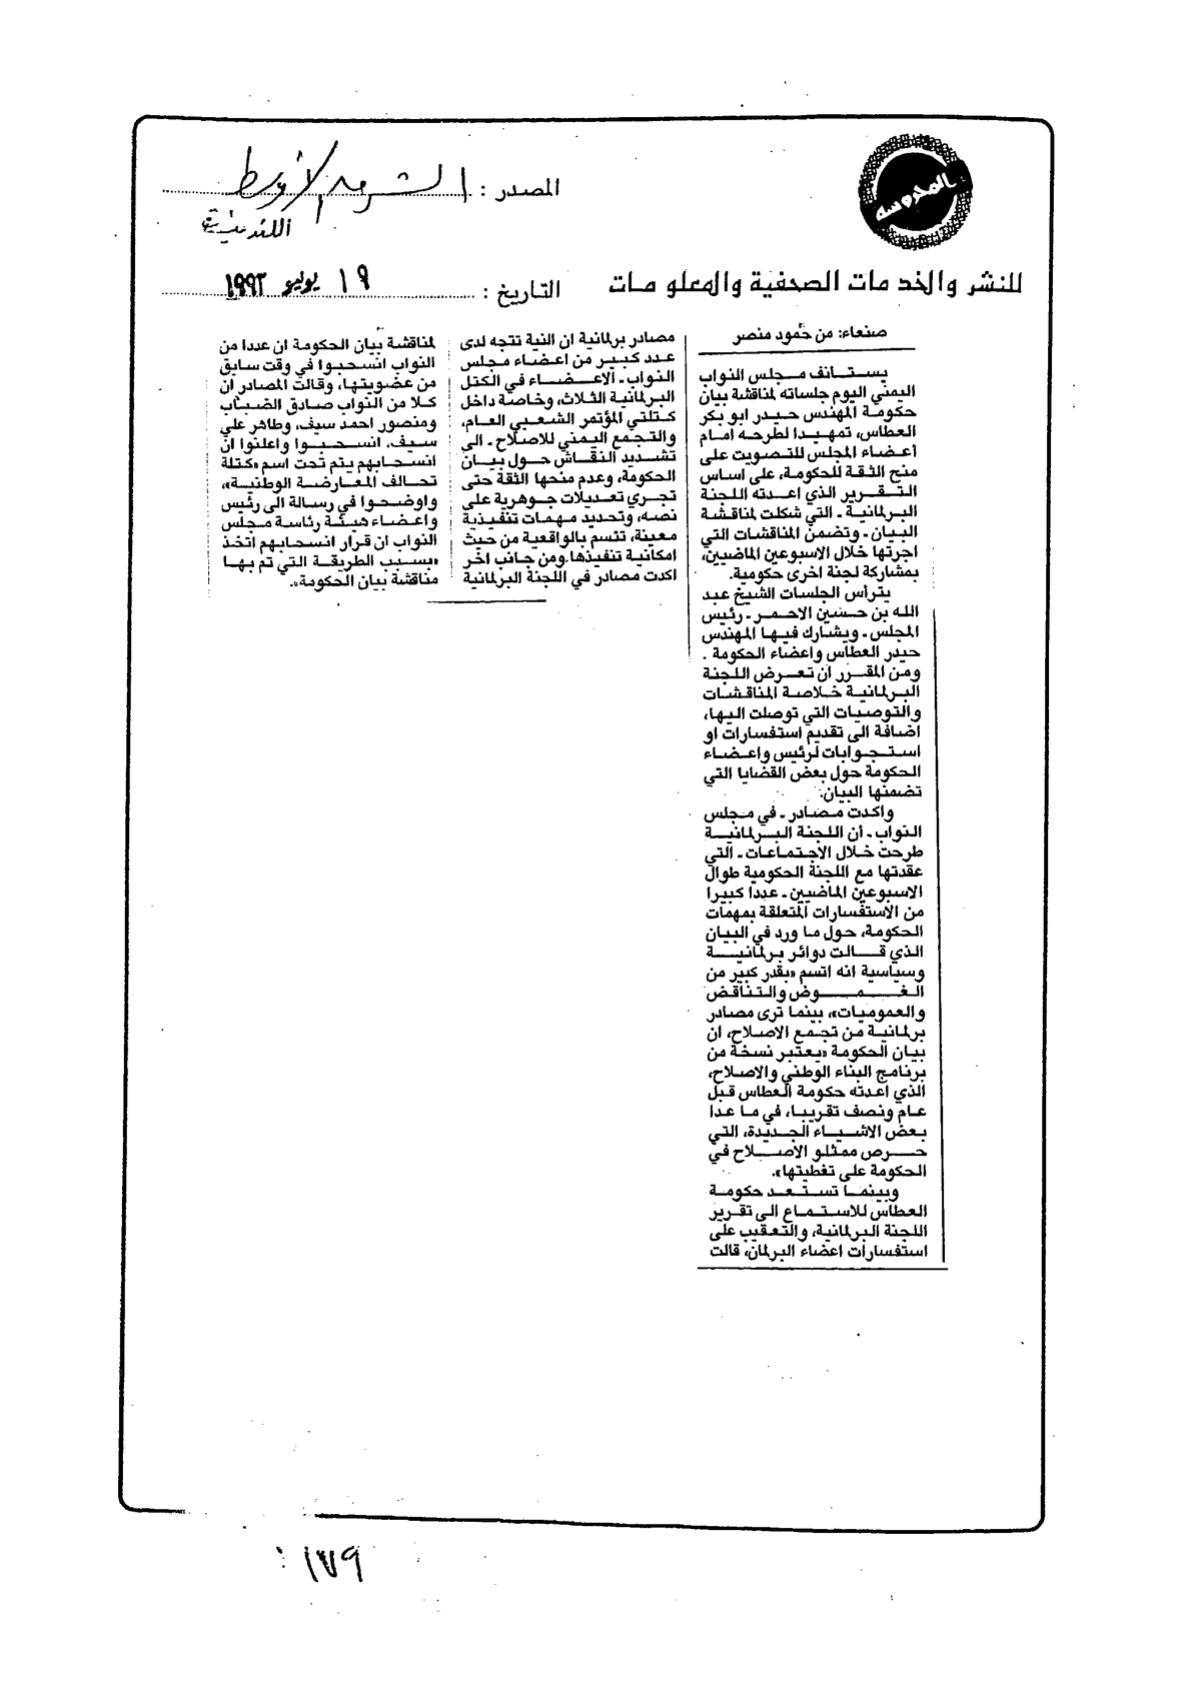 المحروسه
المصدر : الشرق الأوسط
اللندنية
للنشر والخدمات الصحفية والمعلومات
التاريخ : ١٩ يوليو ١٩٩٣
صنعاء: من حمود منصر
يستانف مجلس النواب
اليمني اليوم جلساته لمناقشة بيان
حكومة المهندس حيدر ابو بكر
العطاس، تمهيدا لطرحه امام
أعضاء المجلس للتصويت على
منح الثقة للحكومة، على اساس
التقرير الذي اعدته اللجنة
البرلمانية ـ التي شكلت لمناقشة
البيان ـ وتضمن المناقشات التي
اجرتها خلال الاسبوعين الماضيين،
بمشاركة لجنة اخرى حكومية.
يترأس الجلسات الشيخ عبد
الله بن حسين الاحمر ـ رئيس
المجلس ـ ويشارك فيها المهندس
حيدر العطاس واعضاء الحكومة .
ومن المقرر ان تعرض اللجنة
البرلمانية خلاصة المناقشات
والتوصيات التي توصلت اليها،
اضافة الى تقديم استفسارات او
استجوابات لرئيس واعضاء
الحكومة حول بعض القضايا التي
تضمنها البيان.
واكدت مصادر ـ في مجلس
النواب ـ أن اللجنة البرلمانية
طرحت خلال الاجتماعات ـ التي
عقدتها مع اللجنة الحكومية طوال
الاسبوعين الماضيين ـ عددا كبيرا
من الاستفسارات المتعلقة بمهمات
الحكومة، حول ما ورد في البيان
الذي قالت دوائر برلمانية
وسياسية انه اتسم «بقدر كبير من
الغموض والتناقض
والعموميات»، بينما ترى مصادر
برلمانية من تجمع الاصلاح، ان
بيان الحكومة «يعتبر نسخة من
برنامج البناء الوطني والاصلاح،
الذي اعدته حكومة العطاس قبل
عام ونصف تقريبا، في ما عدا
بعض الاشياء الجديدة، التي
حرص ممثلو الاصلاح في
الحكومة على تغطيتها».
وبينما تستعد حكومة
العطاس للاستماع الى تقرير
اللجنة البرلمانية، والتعقيب على
استفسارات اعضاء البرلمان، قالت
مصادر برلمانية ان النية تتجه لدى
عدد كبير من اعضاء مجلس
النواب ـ الاعضاء في الكتل
البرلمانية الثلاث، وخاصة داخل
كتلتي المؤتمر الشعبي العام،
والتجمع اليمني للاصلاح ـ الى
تشديد النقاش حول بيان
الحكومة، وعدم منحها الثقة حتى
تجري تعديلات جوهرية على
نصه، وتحديد مهمات تنفيذية
معينة، تتسم بالواقعية من حيث
امكانية تنفيذها. ومن جانب اخر
اكدت مصادر في اللجنة البرلمانية
لمناقشة بيان الحكومة ان عددا من
النواب انسحبوا في وقت سابق
من عضويتها، وقالت المصادر ان
كلا من النواب صادق الضباب
ومنصور احمد سيف، وطاهر علي
سيف، انسحبوا واعلنوا ان
انسحابهم يتم تحت اسم «كتلة
تحالف المعارضة الوطنية»،
واوضحوا في رسالة الى رئيس
واعضاء هيئة رئاسة مجلس
النواب ان قرار انسحابهم اتخذ
«بسبب الطريقة التي تم بها
مناقشة بيان الحكومة».
١٧٩